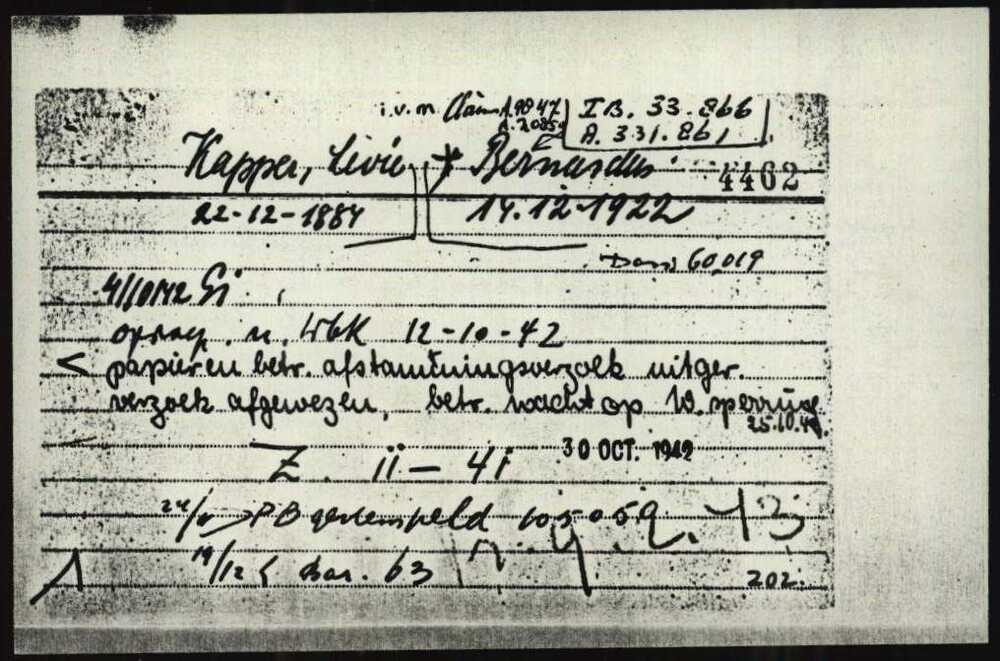 i.v.m. A.9847 I B. 33.866
A. 331.861
Kapper, Levie Bernardus 4462
22-12-1884 14.12-1922
60.019
4/10/42
opvrag. n. Wbk 12-10-42
< papieren betr. afstammingsverzoek uitger.
verzoek afgewezen, betr. wacht op W. sperrung
25.10.42.
Z. ii - 41 30 OCT. 1942
PB gestempeld 105059
19/12 Bar. 63 n. 9.2.43
202.